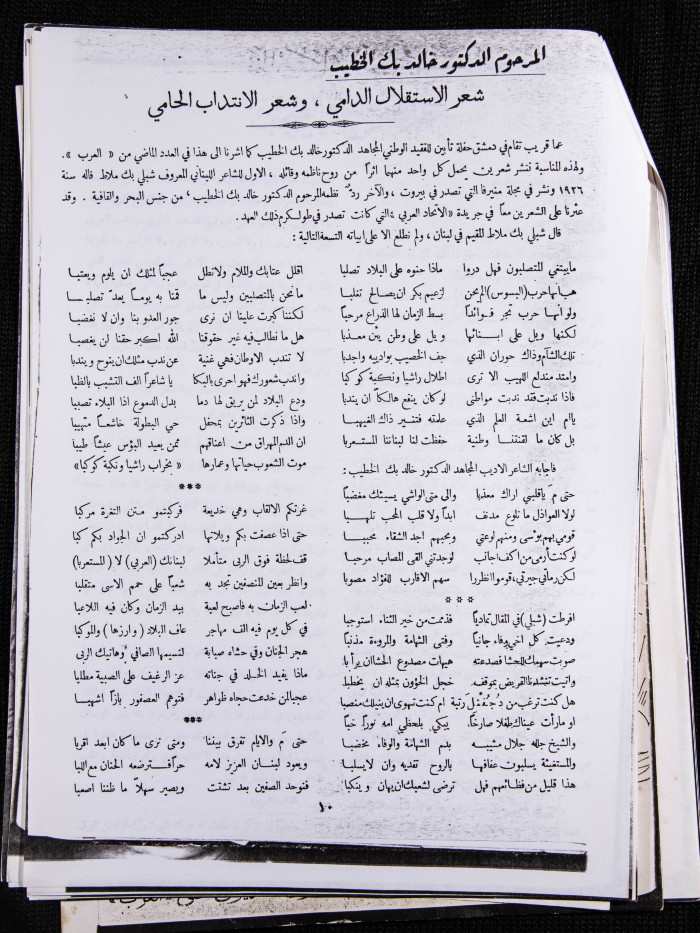 المرحوم الدكتور خالد بك الخطيب
شعر الاستقلال الدامي ، وشعر الانتداب الحامي
عما قريب تقام في دمشق حفلة تأبين للفقيد الوطني المجاهد الدكتور خالد بك الخطيب كما اشرنا الى هذا في العدد الماضي من « العرب » .
ولهذه المناسبة ننشر شعرين يحمل كل واحد منهما اثراً من روح ناظمه وقائله ، الاول للشاعر اللبناني المعروف شبلي بك ملاط قاله سنة
١٩٢٦ ونشر في مجلة منيرفا التي تصدر في بيروت ، والآخر ردٌّ نظمه المرحوم الدكتور خالد بك الخطيب ، من جنس البحر والقافية . وقد
عثرنا على الشعرين معاً في جريدة «الاتحاد العربي» التي كانت تصدر في طولكرم ذلك العهد .
قال شبلي بك ملاط المقيم في لبنان ، ولم نطلع الا على ابياته التسعة التالية :
ما يبتغي المتصلبون فهل دروا ماذا جنوه على البلاد تصلبا
هب انها حرب (البسوس) الم يحن لزعيم بكر ان يصالح تغلبا
ولو انها حرب تجر فوائداً بسط الزمان لها الذراع مرحبا
لكنها ويل على ابنائها ويل على وطن يئن معذبا
تلك الشآم وذاك حوران الذي جف الخصيب بواديه واجدبا
وامتد مندلع اللهيب الا ترى اطلال راشيا ونكبة كوكبا
فاذا ندبت فقد ندبت مواطني لو كان ينفع هالكاً ان يندبا
يا ام اين اشعة العلم الذي علمته فتنير ذاك الغيهبا
بل كان ما لقنتنا وطنية حفظت لنا لبناننا المستعربا
اقلل عتابك والملام ولا تطل عجباً لمثلك ان يلوم ويعتبا
ما نحن بالمتصلبين وليس ما قمنا به يوماً يعدّ تصلبا
لكننا كبرت علينا ان نرى جور العدو بنا وان لا نغضبا
هل ما نطالب فيه غير حقوقنا الله اكبر حقنا لن يغصبا
لا تندب الاوطان فهي غنية عن ندب مثلك ان ينوح ويندبا
واندب شعورك فهو احرى بالبكا يا شاعراً الف التشبب بالظبا
ودع البلاد لمن يريق لها دما بدل الدموع اذا البلاد تصببا
واذا ذكرت الثائرين بمحفل حي البطولة خاشعاً متهيبا
ان الدم المهراق من اعناقهم ممن يعيد البؤس عيشاً طيبا
موت الشعوب حياتها وعمارها « بخراب راشيا ونكبة كوكبا»
فاجابه الشاعر الاديب المجاهد الدكتور خالد بك الخطيب :
حتى مَ يا قلبي اراك معذبا والى متى الواشي يسيئك مغضبا
لولا العواذل ما تلوع مدنف ابداً ولا قلب المحب تلهبا
قومي بهم بؤسى ومنهم لوعتي وبحبهم اجد الشقاء محببا
لو كنت أُرمى من اكف اجانب لوجدتني القى المصاب مرحبا
لكن رماني جيرتي، قوموا انظروا سهم الاقارب للفؤاد مصوبا
* * *
افرطت (شبلي) في المقال تمادياً فذممت من خير الثناء استوجبا
ودعيت كل اخي وفاء جانياً وفتى الشهامة والمروءة مذنبا
صوبت سهمك للحشا فصدعته هيهات مصدوع الحشا ان يرأبا
واتيت تنشدنا القريض بموقف خجل الخؤون بمثله ان يخطبا
هل كنت ترغب من رتبة ام كنت تهوى ان ينيلك منصبا
او ما رأت عيناك طفلاً صارخاً يبكي بلحظي امه نوراً خبا
والشيخ جلله جلال مشيبه بدم الشهامة والوفاء مخضبا
والمستغيثة يسلبون عفافها بالروح تفديه وان لا يسلبا
هذا قليل من فظائعهم فهل ترضى لشعبك ان يهان وينكبا
* * *
غرتكم الالقاب وهي خديعة فركبتمو متن التغرة مركبا
حتى اذا عصفت بكم ويلاتها ادركتمو ان الجواد بكم كبا
قف لحظة فوق الربى متأملا لبنانك (العربي) لا (المستعربا)
وانظر بعين المنصفين تجد به شعباً على حمم الاسى متقلبا
لعب الزمان به فاصبح لعبة بيد الزمان وكان فيه اللاعبا
في كل يوم فيه الف مهاجر عاف البلاد (وارزها) والموكبا
هجر الجنان وفي حشاه صبابة لنسيمها الصافي وهاتيك الربى
ماذا يفيد الخلد في جناته عز الرغيف على الصبية مطلبا
عجباً لمن خدعت حجاه ظواهر فتوهم العصفور بازاً اشهبا
* * *
حتى مَ والايام تفرق بيننا ومتى نرى ما كان ابعد اقربا
ويعود لبنان العزيز لامه حراً فترضعه الحنان مع اللبا
فنوحد الصفين بعد تشتت ويصير سهلاً ما ظننا اصعبا
١٠